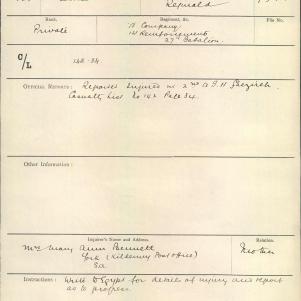 Reginald
Rank.
Regiment, &c.
Private
"B" Company
14 Reinforcements
27th Battalion
C/L
142-34
OFFICIAL REPORTS: Reported Injured
Casualty List No 142 Page 34.
Other Information:
Inquirer's Name and Address.
Relation.
Mrs Mary Ann Bennett
York (Kilkenny Post Office)
S.A.
Mother
Instructions: Write to Egypt for details of injury and report
as to progress